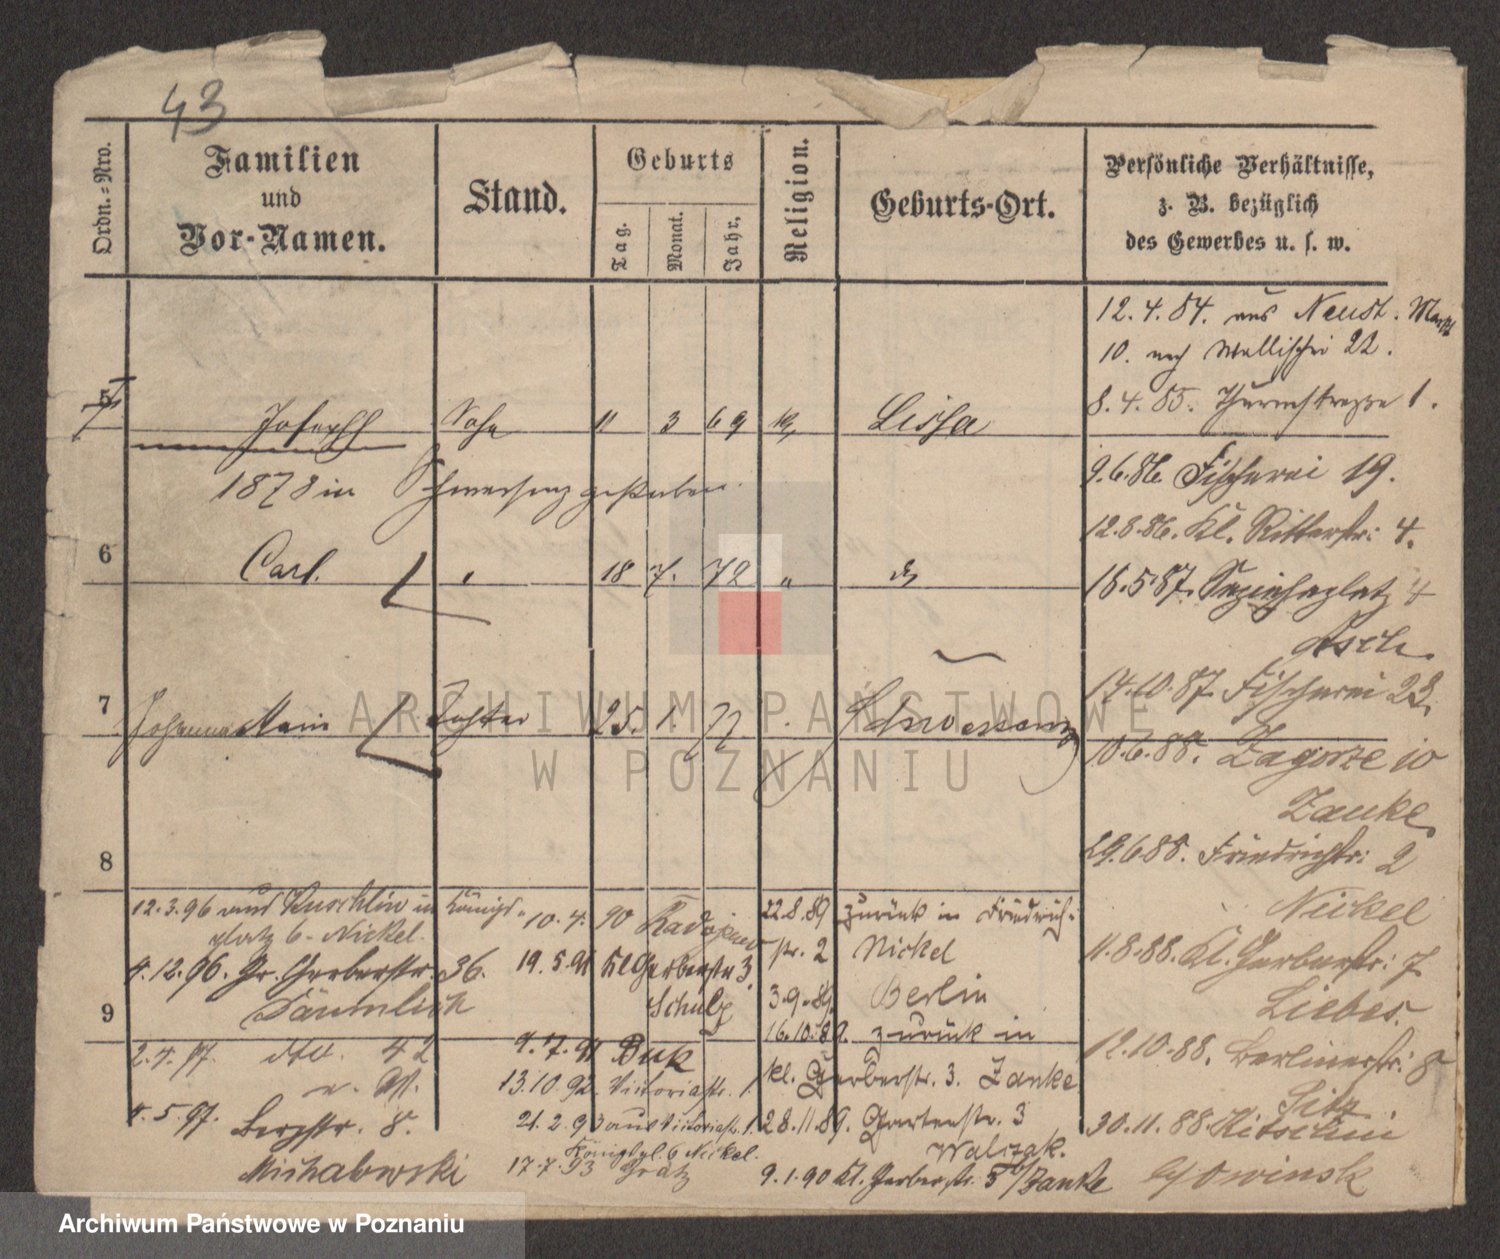 43
Ordn.-Nro.
Familien
und
Vor-Namen.
Stand.
Geburts
Tag.
Monat.
Jahr.
Religion.
Geburts-Ort.
Persönliche Verhältnisse,
z. B. bezüglich
des Gewerbes u. s. w.
12.4.84. aus Neust. Markt
10. nach Wallischei 22.
8.4.85. Thurmstrasse 1.
5 Joseph Sohn 11 3 69 Lissa
9.6.86. Fischerei 19.
1878 in Schwersenz gestorben
12.8.86. Kl. Ritterstr. 4.
6 Carl. 18 7. 72 "
16.5.87. Sapiehaplatz 4
Asch.
17.10.87. Fischerei 23.
7 Johanna Tochter 25. 1. 77. Schwersenz
10.6.88. Zagorze 10
Zanke
29.6.88. Friedrichstr. 2
Nickel
8
12.3.96 aus Kuschlin in Königs-
platz 6 - Nickel.
4.12.96. Gr. Gerberstr. 36.
Dämlich
9
2.4.97. 42
4.5.97. Bergstr. 8.
Michalowski
10.4.90 Radojewo
19.5.91 Kl Gerberstr 3.
Schulz
9.7.91 Buk
13.10.92. Victoriastr. 1.
21.2.93 aus Victoriastr. 1.
Königspl. 6 Nickel.
17.7.93 Grätz
22.8.89 zurück in Friedrich-
str. 2 Nickel
3.9.89. Berlin
16.10.89. zurück in
kl. Gerberstr. 3. Zanke
28.11.89. Gartenstr. 3
Walczak.
9.1.90 Kl. Gerberstr. 5 b/Zanke
11.8.88. Kl. Gerberstr. 7
Liebes.
12.10.88. Berlinerstr. 8
30.11.88.
ARCHIWUM PAŃSTWOWE
W POZNANIU
Archiwum Państwowe w Poznaniu